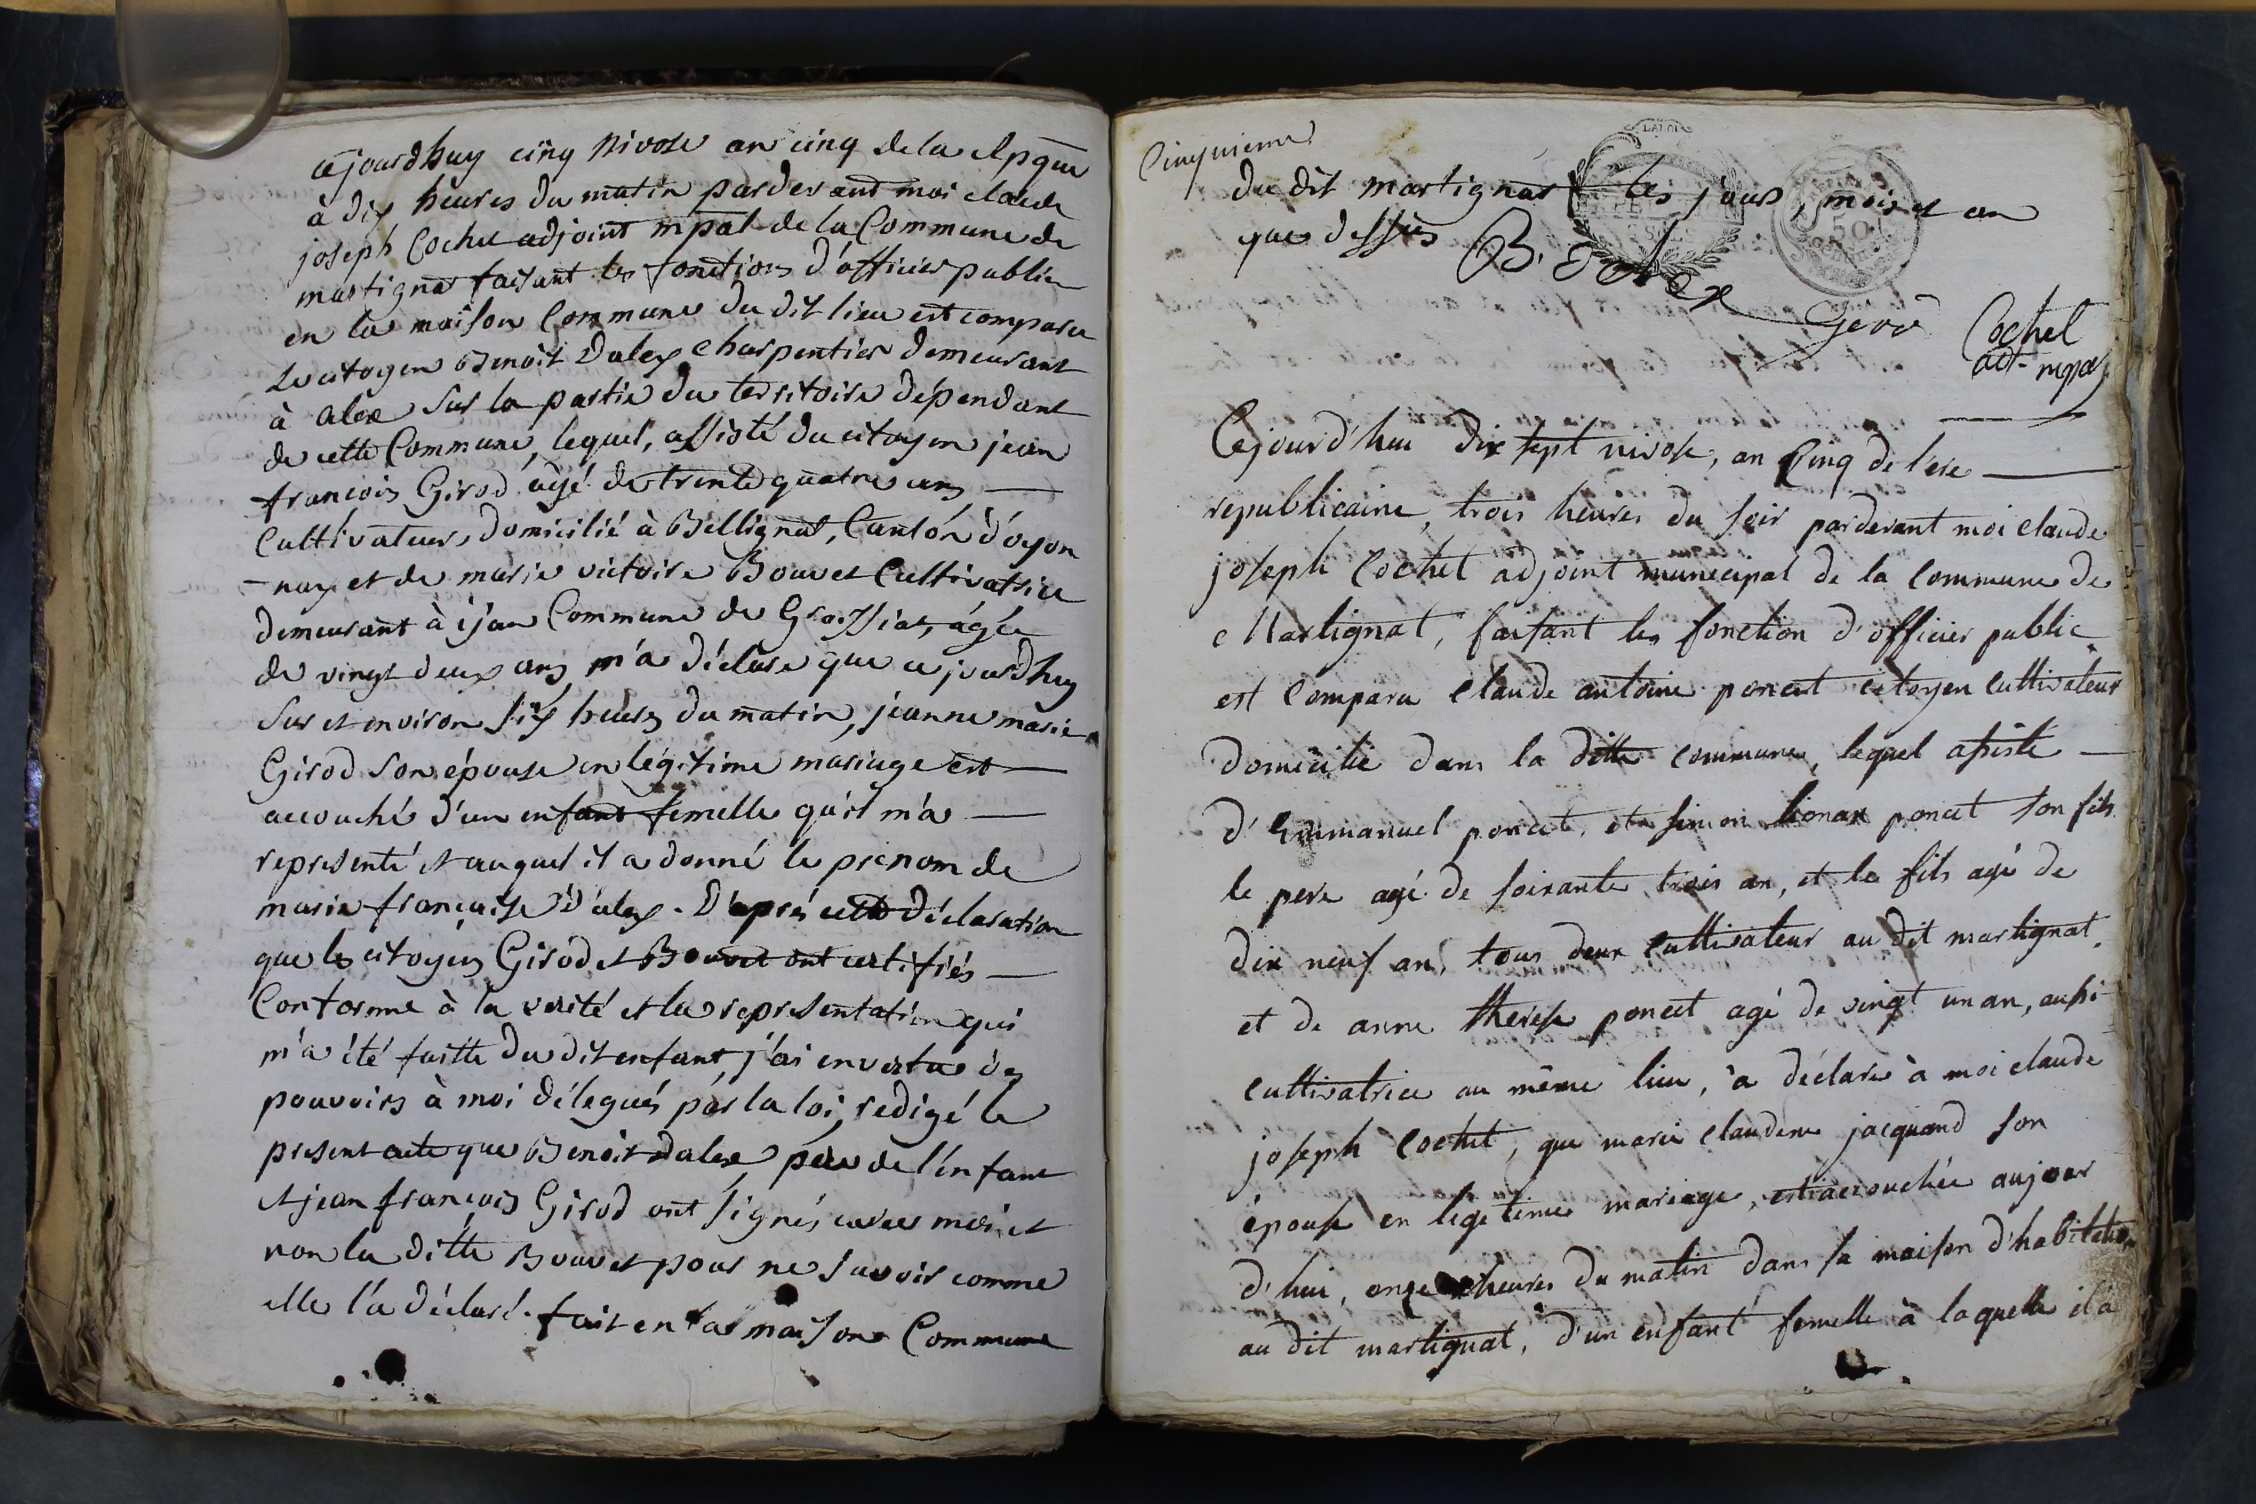 cejourdhuy cinq Nivose an cinq de la Rpque
à dix heures du matin pardevant moi claude
joseph Cochet adjoint mpal de la Commune de
martignat faisant les fonctions d'officier public
en la maison Commune du dit lieu est comparu
Le citoyen Benoit Dalex Charpentier demeurant
à alex sur la partie du territoire dépendant
de cette Commune, lequel, assisté du citoyen jean
francois Girod âgé de trente quatre ans
Cultivateur, domicilié à Bellignat, Canton d'oyon
-nax et de marie victoire Bouvet Cultivatrice
demeurant à ijan Commune de Groissiat, agée
de vingt deux ans m'a déclaré que ce jourdhuy
sur et environ six heures du matin, jeanne marie
Girod son épouse en légitime mariage est
accouché d'un enfant femelle qu'il m'a
representé et auquel il a donné le prénom de
marie françoise Dalex. D'après cette déclaration
que les citoyens Girod et Bouvet ont certifiés
Conforme à la verité et la representation qui
m'a été faitte du dit enfant, j'ai en vertu des
pouvoirs à moi délegués par la loi, redigé le
present acte que Benoit Dalex père de l'enfant
et jean françois Girod ont signés avec moi et
non la ditte Bouvet pour ne savoir comme
elle l'a déclaré. fait en la maison Commune
Cinquieme
du dit martignat les jour, mois et an
que dessus B. Dalex
Girod Cochet
adt mpal
Cejourd'hui dix sept nivose, an Cinq de l'ere
republicaine, trois heures du soir pardevant moi claude
joseph Cochet adjoint municipal de la commune de
Martignat, faisant les fonction d'officier public
est comparu claude antoine poncet citoyen cultivateur
domicilié dans la ditte commune, lequel assisté
d'Emmanuel poncet, et simon lionax poncet son fils
le pere agé de soixante trois an, et le fils agé de
dix neuf an, tous deux cultivateur au dit martignat
et de anne therese poncet agé de vingt un an, aussi
cultivatrice au même lieu, a déclaré à moi claude
joseph Cochet, que marie claudine jacquand son
épouse en legitime mariage, est accouchée aujour
d'hui, onze heures du matin dans sa maison d'habitation
au dit martignat, d'un enfant femelle à laquelle il a
50